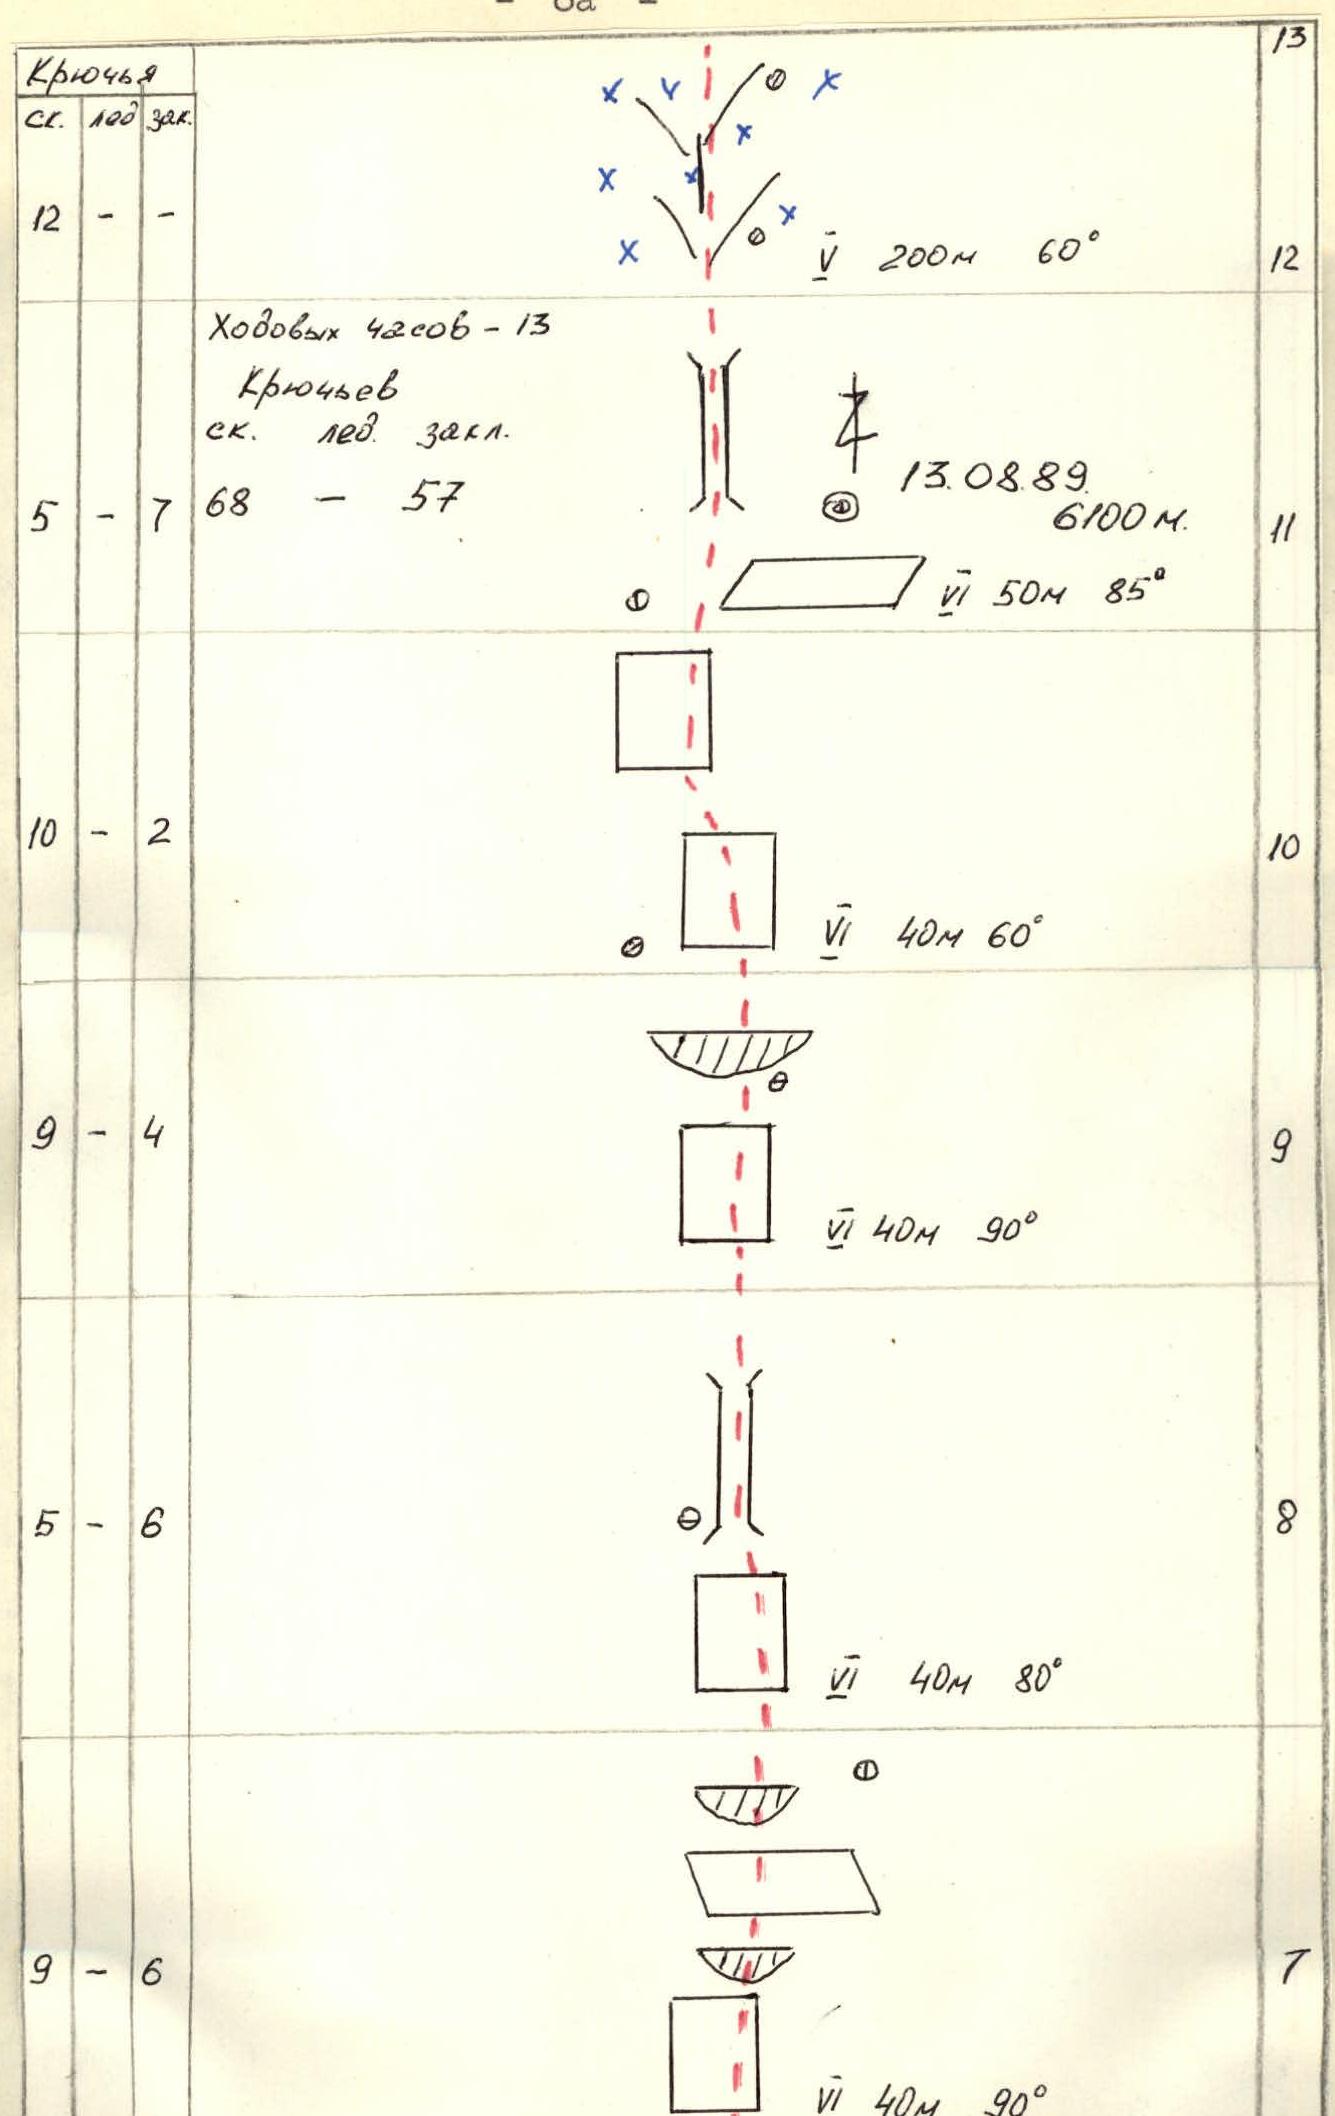 - 8а -
13
Крючья
ск. лед зак.
12 - -
V 200м 60°
12
Ходовых часов - 13
Крючьев
ск. лед. закл.
68 - 57
13.08.89.
6100 м.
5 - 7
11
VI 50м 85°
10 - 2
10
VI 40м 60°
9 - 4
9
VI 40м 90°
5 - 6
8
VI 40м 80°
9 - 6
7
VI 40м 90°